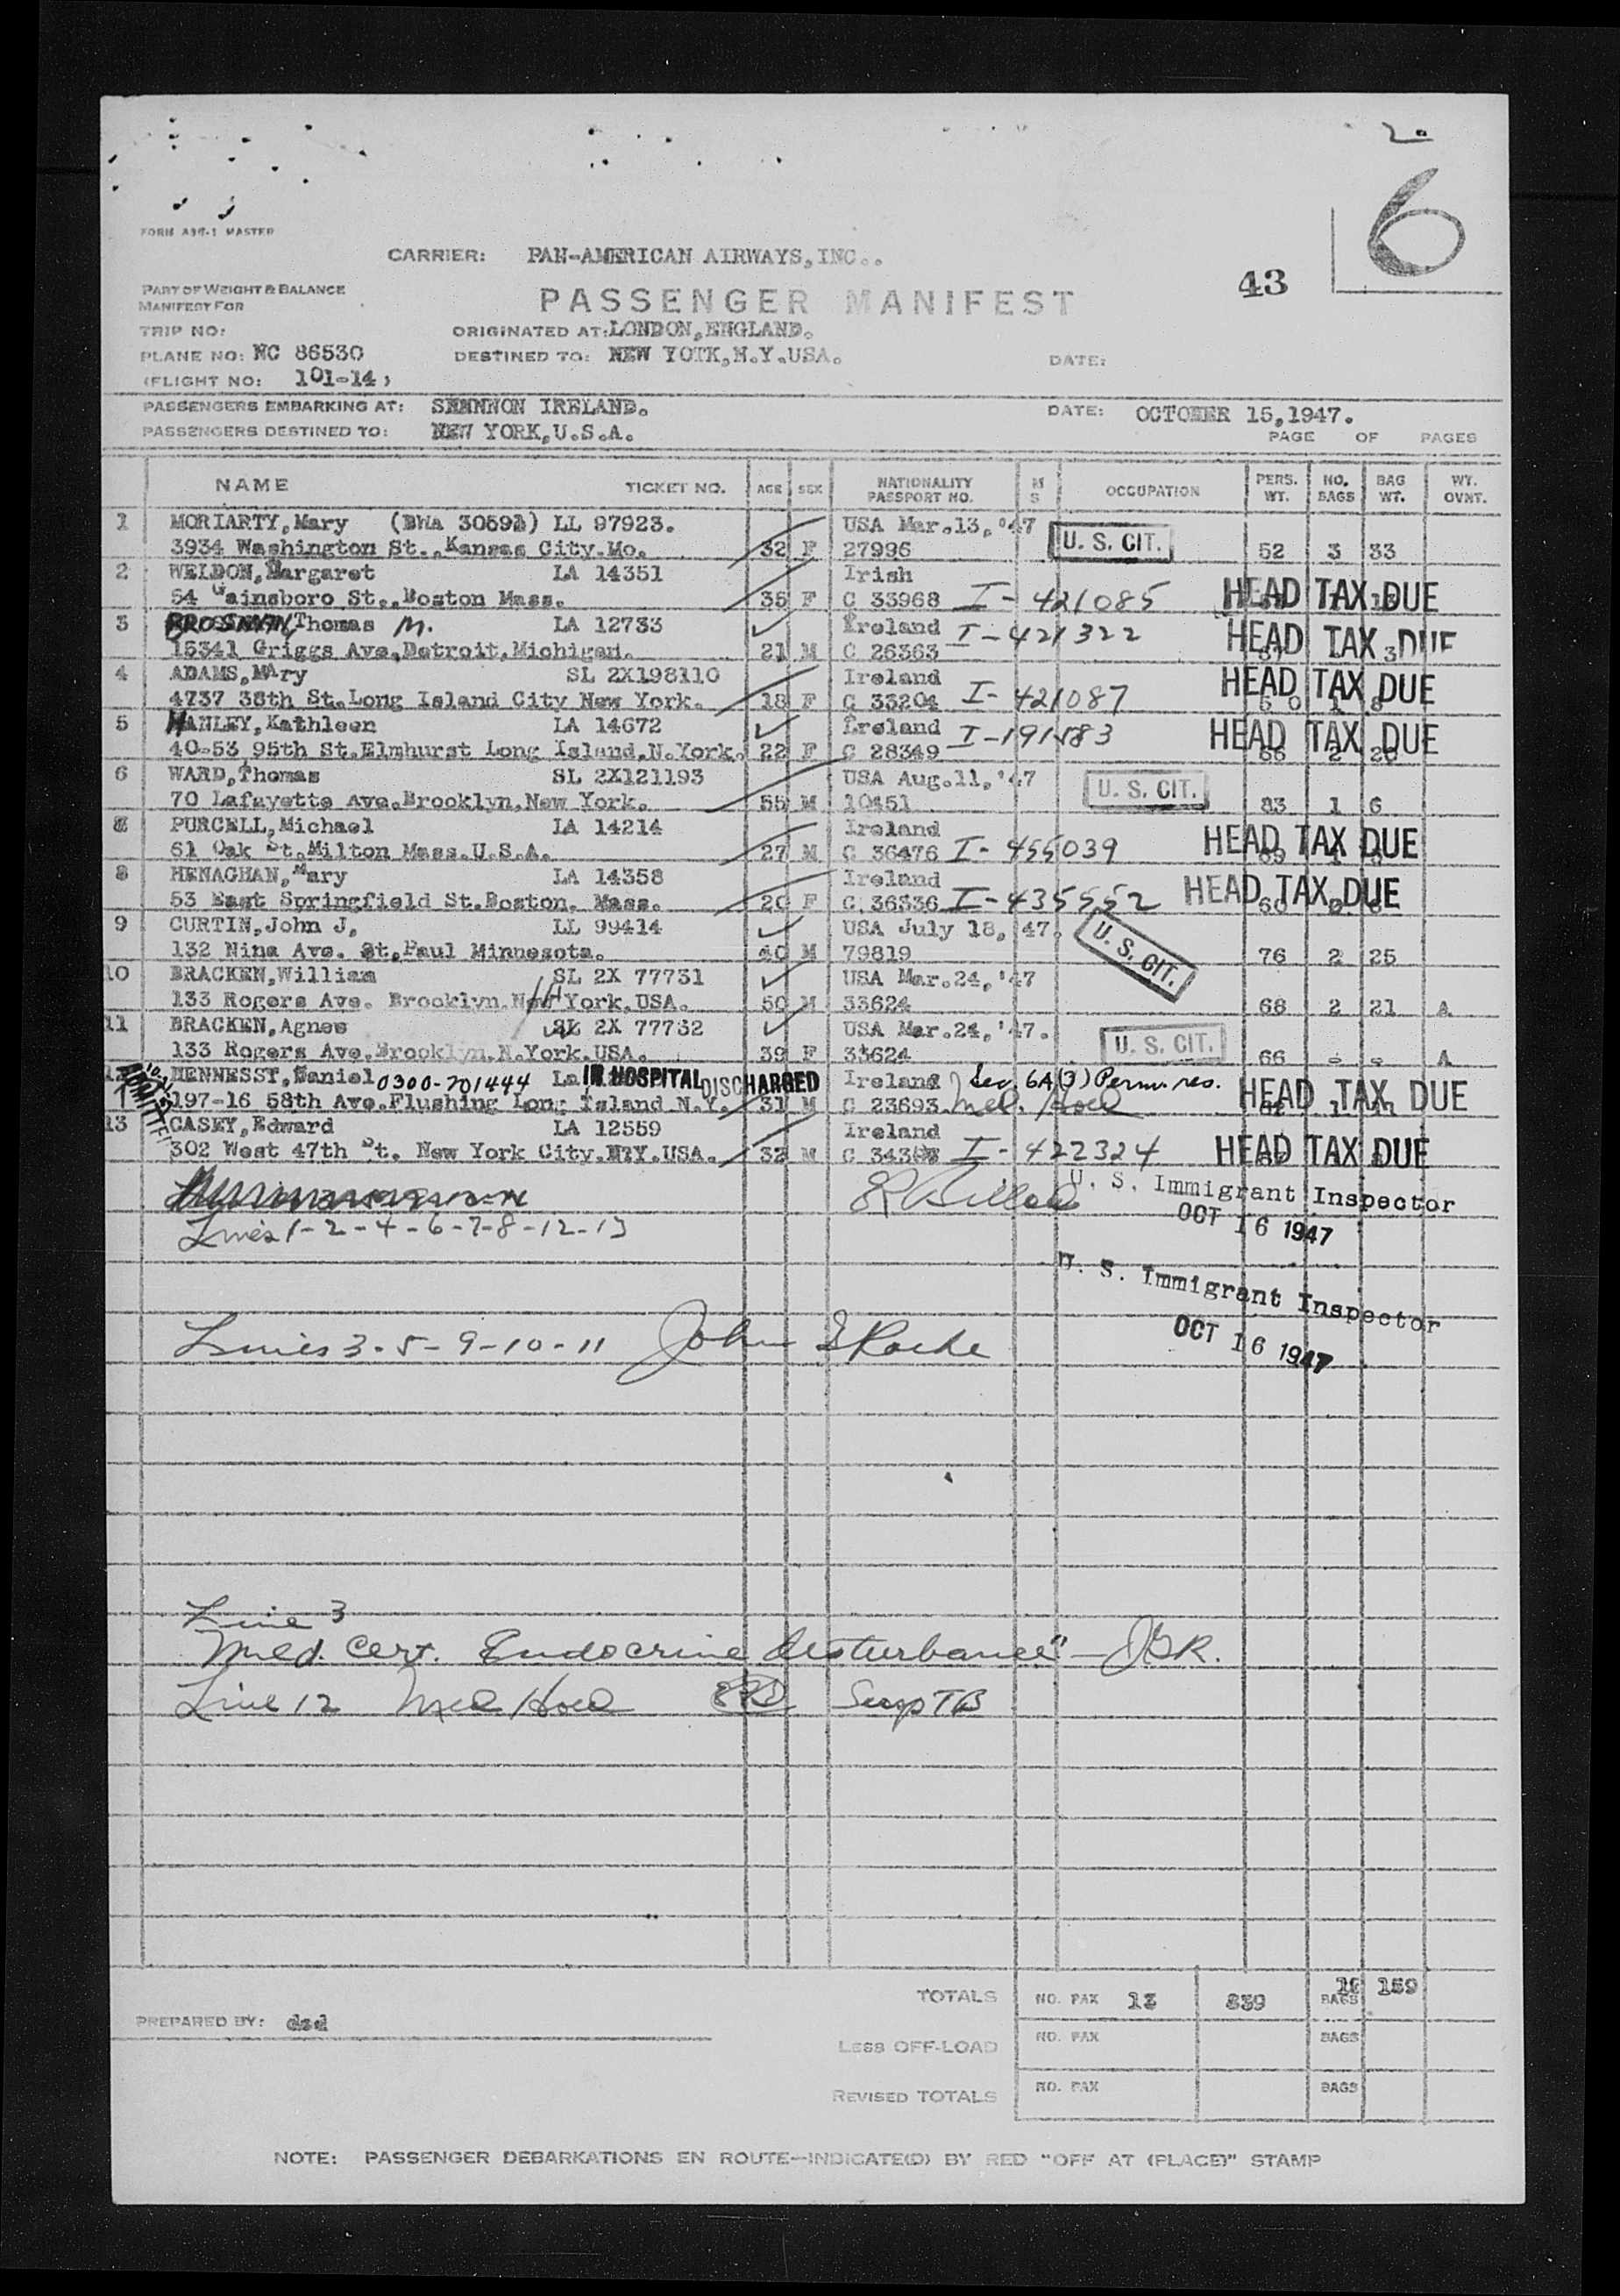 6
FORM
CARRIER: PAN-AMERICAN AIRWAYS,INC..
43
PART OF WEIGHT & BALANCE
MANIFEST FOR
PASSENGER MANIFEST
TRIP NO:
ORIGINATED AT: LONDON,ENGLAND.
PLANE NO: NC 86530
DESTINED TO: NEW YOTK,N.Y.USA.
DATE:
(FLIGHT NO: 101-14)
PASSENGERS EMBARKING AT: SHANNON IRELAND.
DATE: OCTOBER 15,1947.
PASSENGERS DESTINED TO: NEW YORK,U.S.A.
PAGE OF PAGES
NAME TICKET NO. AGE SEX NATIONALITY PASSPORT NO. M S OCCUPATION PERS. WT. NO. BAGS BAG WT. WT. OVNT.
1 MORIARTY,Mary LL 97923. USA Mar.13,'47
3934 Washington St.,Kansas City.Mo. 32 F 27996 U. S. CIT. 52 3 33
2 WELDON,Margaret LA 14351 Irish
54 Gainsboro St.,Boston Mass. 35 F C 33968 I-421085 HEAD TAX DUE
3 BROSNAN,Thomas M. LA 12733 Ireland I-421322
15341 Griggs Ave,Detroit,Michigan. 21 M C 26363 HEAD TAX DUE
4 ADAMS,MAry SL 2X198110 Ireland
4737 38th St.Long Island City New York. 18 F C 33204 I-421087 HEAD TAX DUE
5 HANLEY,Kathleen LA 14672 Ireland
40-53 95th St.Elmhurst Long Island,N.York. 22 F C 28349 HEAD TAX DUE 66 2 20
6 WARD,Thomas SL 2X121193 USA Aug.11,'47
70 Lafayette Ave.Brooklyn,New York. 55 M 10451 U. S. CIT. 83 1 6
7 PURCELL,Michael LA 14214 Ireland
61 Oak St.Milton Mass.U.S.A. 27 M C 36476 I-455039 HEAD TAX DUE
8 HENAGHAN,Mary LA 14358 Ireland
53 East Springfield St.Boston. Mass. 20 F C.36336 I-435552 HEAD TAX DUE
9 CURTIN,John J, LL 99414 USA July 18, 47.
132 Nina Ave. St.Paul Minnesota. 40 M 79819 U. S. CIT. 76 2 25
10 BRACKEN,William SL 2X 77731 USA Mar.24,'47
133 Rogers Ave. Brooklyn.New York.USA. 50 M 33624 68 2 21 A
11 BRACKEN,Agnes SL 2X 77732 USA Mar.24,'47.
133 Rogers Ave.Brooklyn.N.York.USA. 39 F 33624 U. S. CIT. 66 - - A
ADMITTED
HENNESST,Daniel 0300-701444 La IN HOSPITAL DISCHARGED Ireland Sec. 6A(3) Perm. res.
197-16 58th Ave.Flushing Long Island N.Y. 31 M C 23693 Med. Hold HEAD TAX DUE
13 CASEY,Edward LA 12559 Ireland
302 West 47th St. New York City.NYY.USA. 32 M I-422324 HEAD TAX DUE
U. S. Immigrant Inspector
Lines 1-2-4-6-7-8-12-13
OCT 16 1947
U. S. Immigrant Inspector
Lines 3-5-9-10-11 John S Roche
OCT 16 1947
Line 3
Med. Cert. Endocrine disturbance" — JSR.
Line 12 Med Hold Susp TB
TOTALS NO. PAX 13 839 BAGS 159
PREPARED BY: dsd
LESS OFF-LOAD NO. PAX BAGS
REVISED TOTALS NO. PAX BAGS
NOTE: PASSENGER DEBARKATIONS EN ROUTE—INDICATE(D) BY RED "OFF AT (PLACE)" STAMP